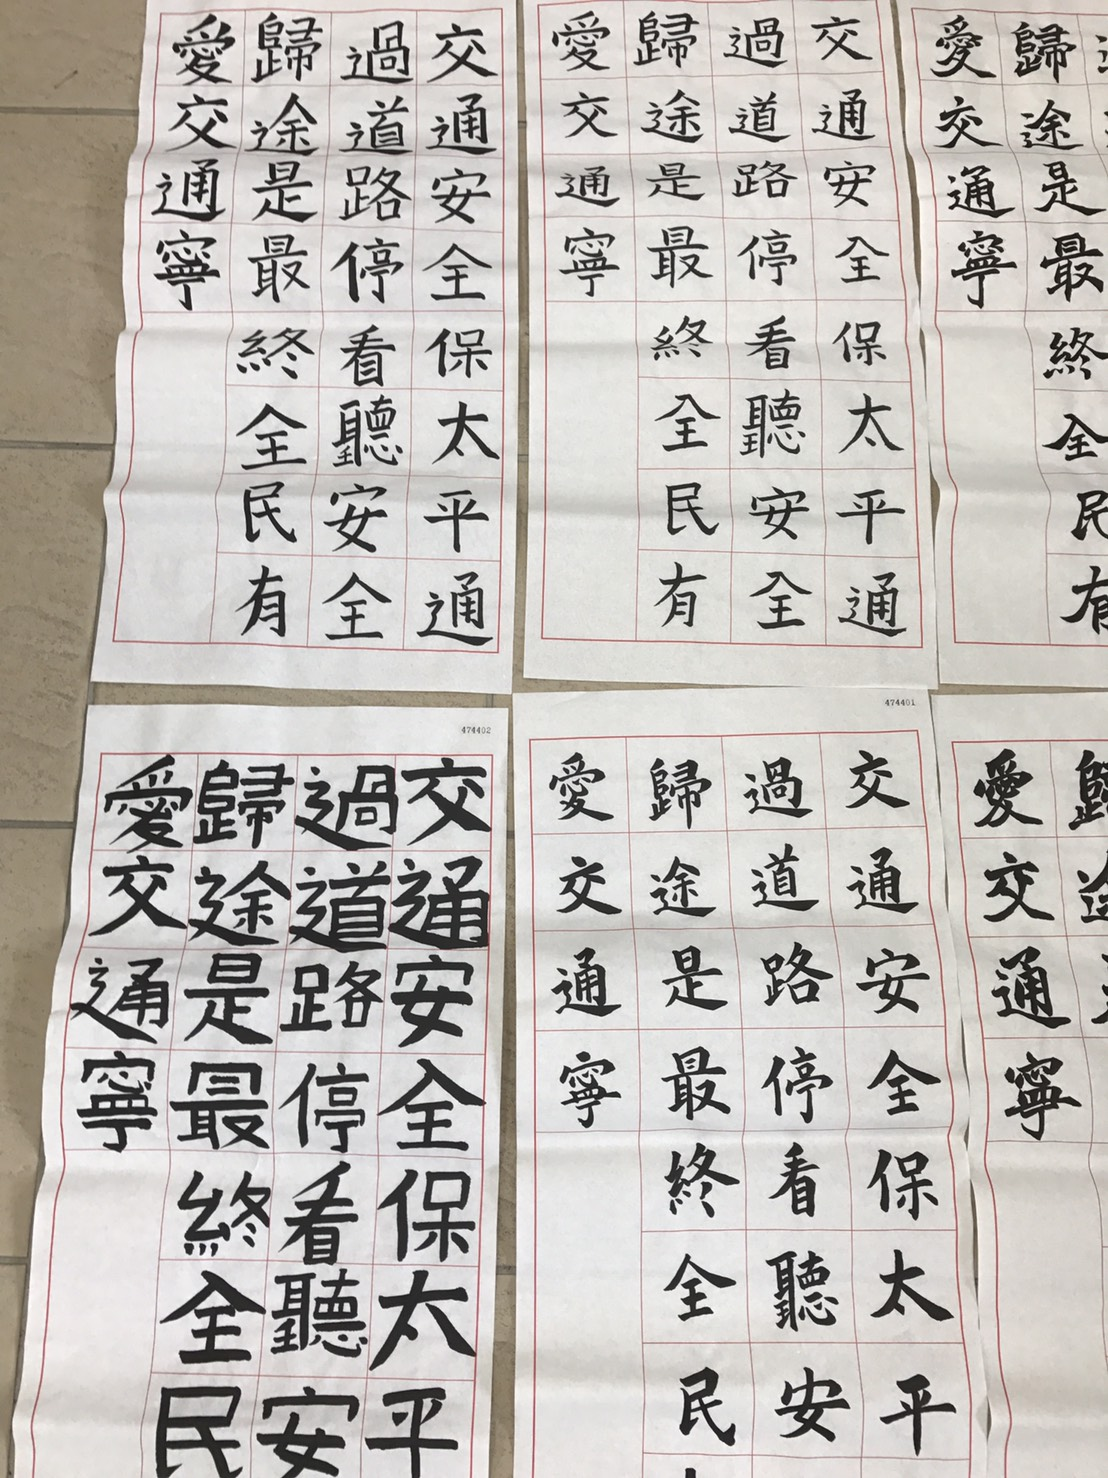 交通安全保太平通
過道路停看聽安全
歸途是最終全民有
愛交通寧
交通安全保太平通
過道路停看聽安全
歸途是最終全民有
愛交通寧
歸途是最終全民有
愛交通寧
474402
交通安全保太平
過道路停看聽安
歸途是最終全民
愛交通寧
474401
交通安全保太平
過道路停看聽安
歸途是最終全民
愛交通寧
歸途
愛交通寧